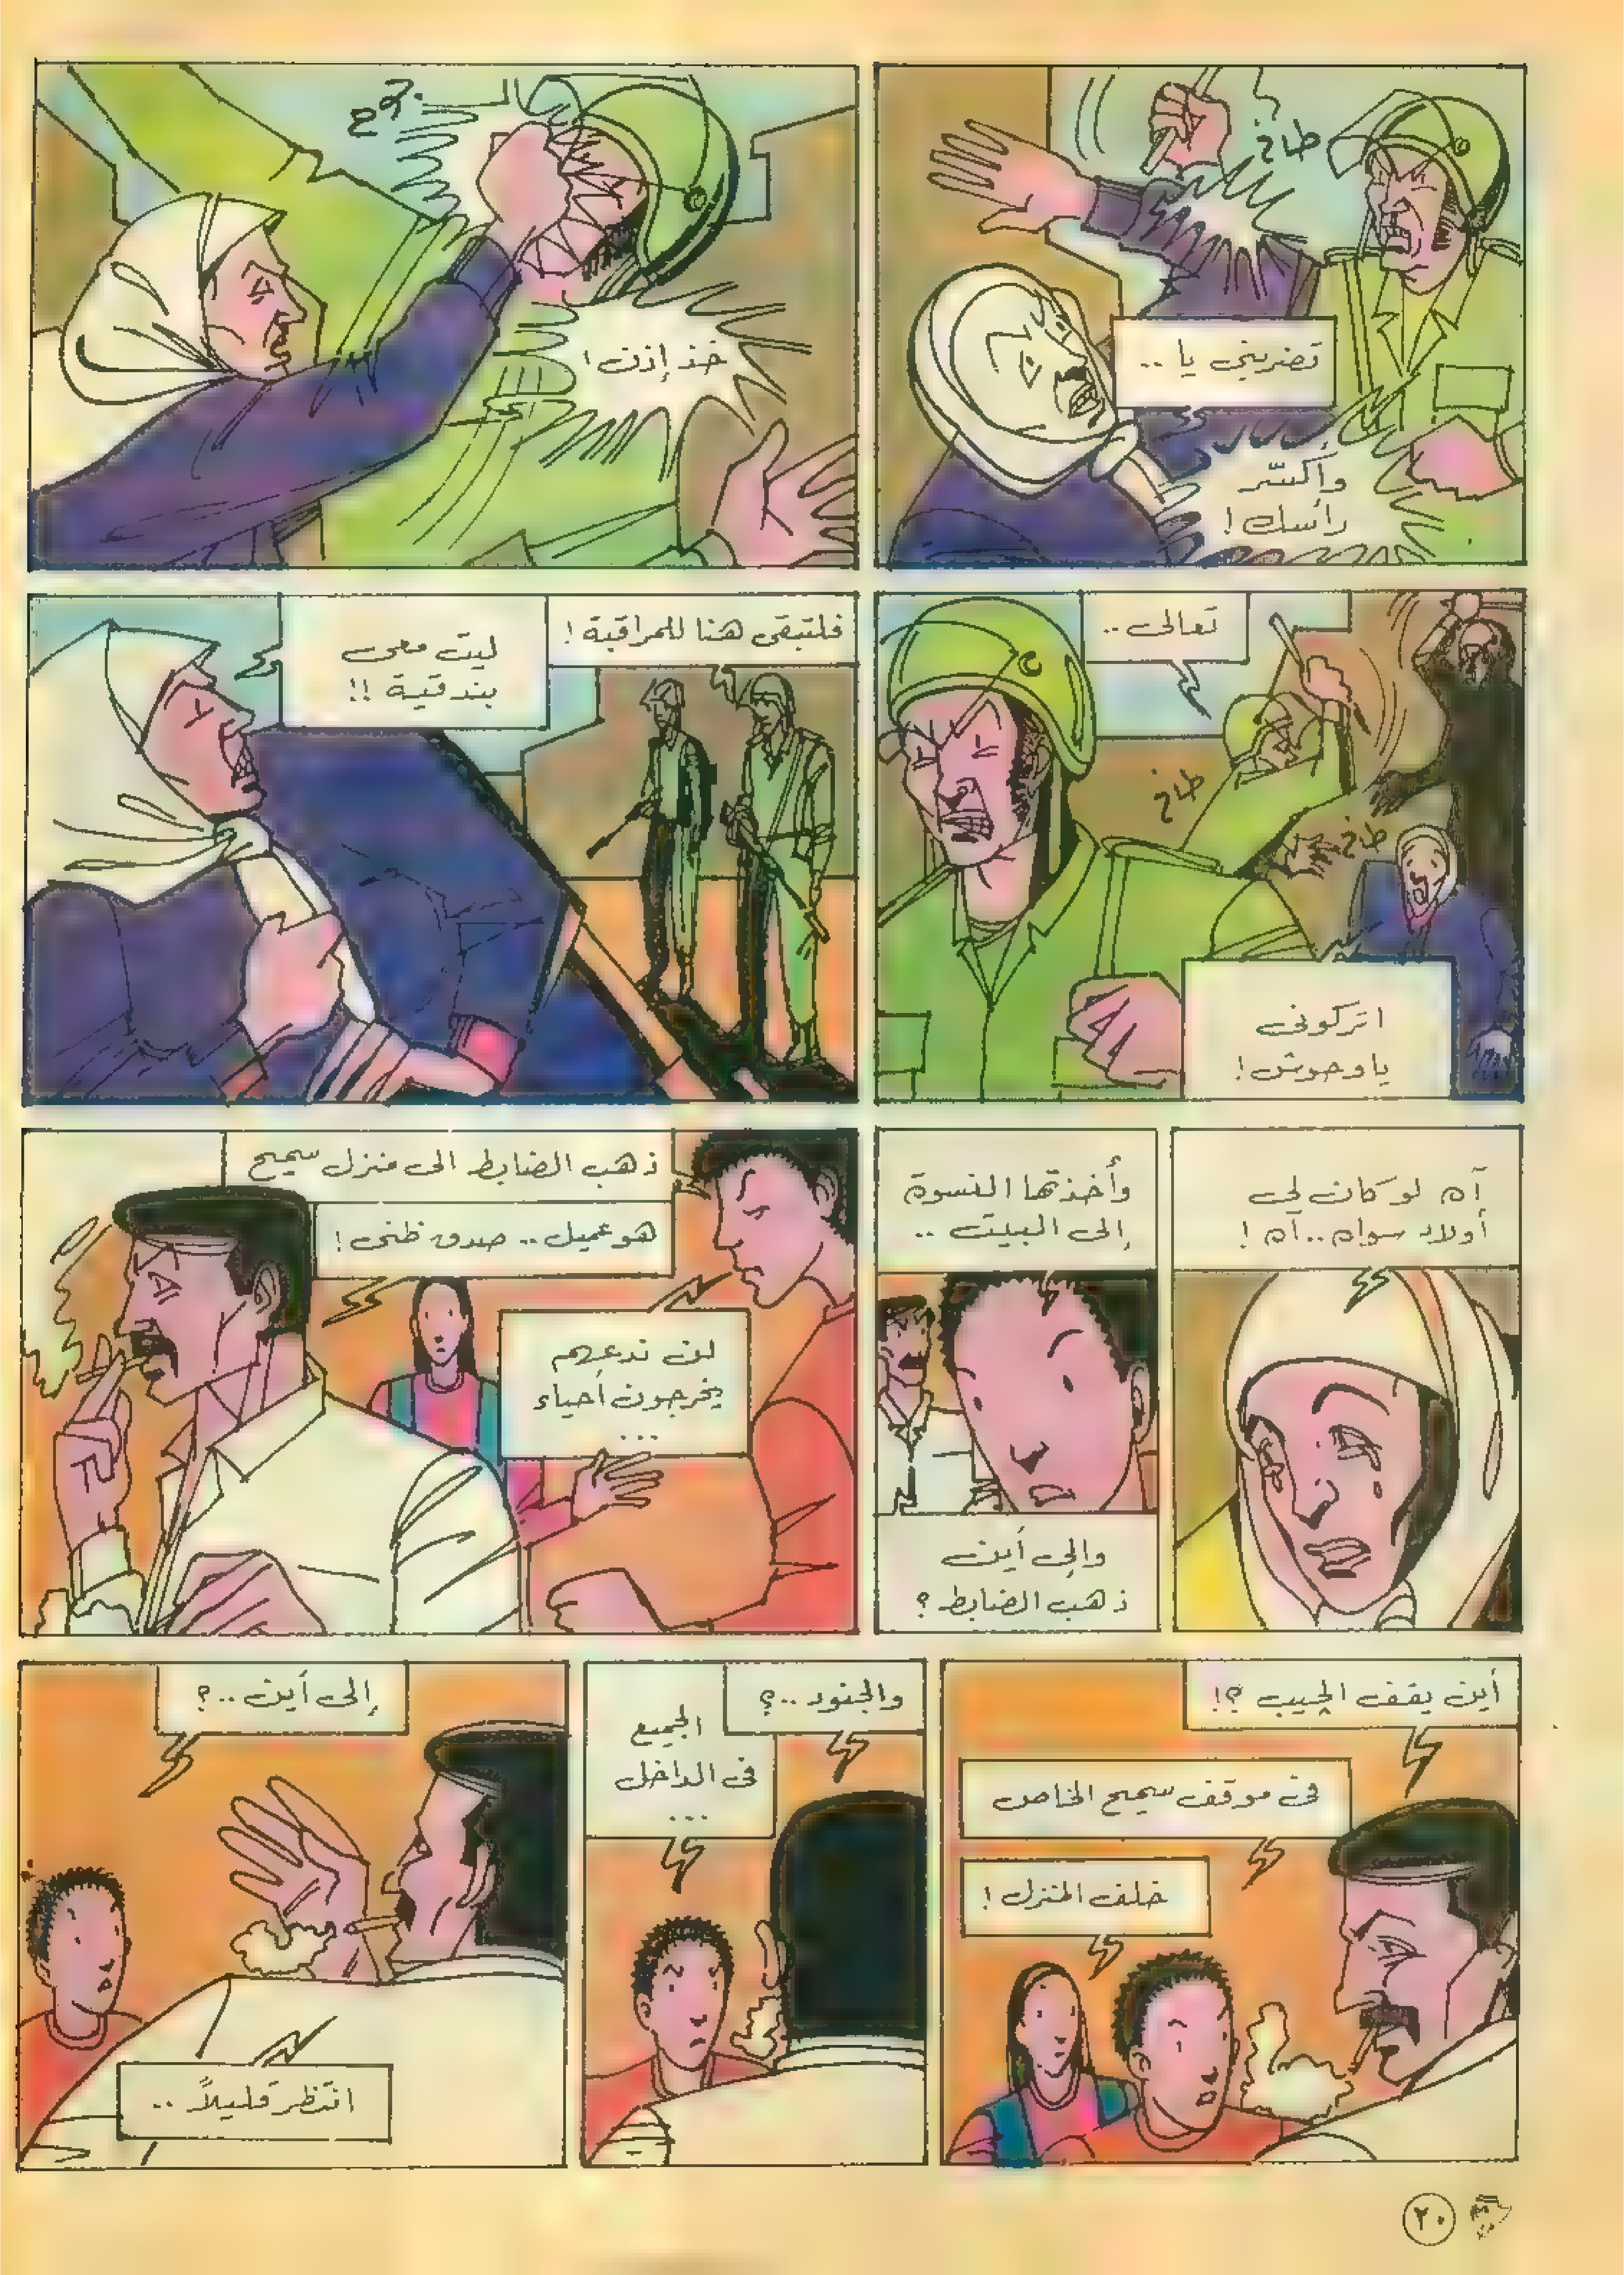 طاخ
تضربني يا ..
وأكسّر
رأسك !
خذ إذن !
تعالى ..
طاخ
طاخ
اتركونى
ياوحوش !
فلتبقى هنا للمراقبة !
ليت معى
بندقية !!
آه لو كان لى
أولاد سواه .. آه !
وأخذتها النسوة
إلى البيت ..
وإلى أين
ذهب الضابط ؟
ذهب الضابط الى منزل سميح
هو عميل .. صدق ظنى !
لن ندعهم
يخرجون أحياء
...
أين يقف الجيب ؟!
فى موقف سميح الخاص
خلف المنزل !
والجنود ..؟
الجميع
فى الداخل
...
إلى أين ..؟
انتظر قليلاً ..
٢٠